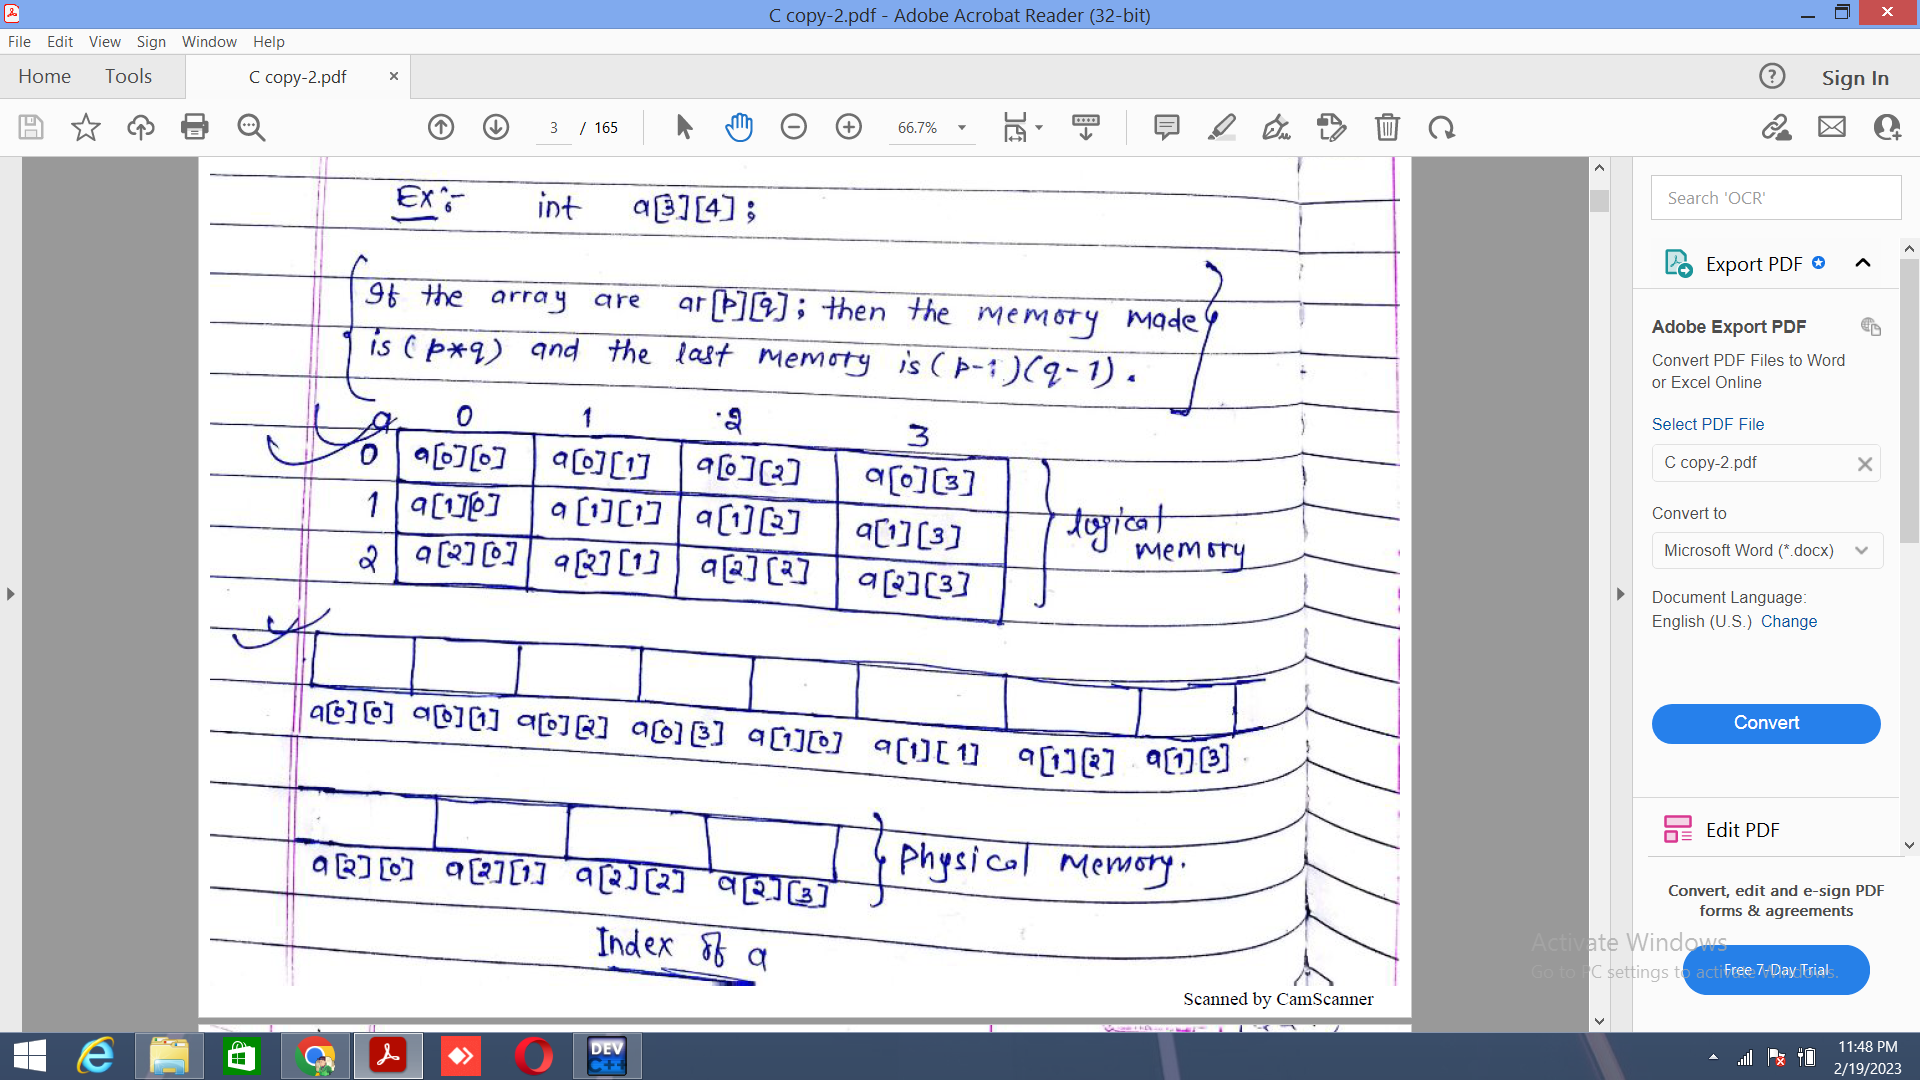 C copy-2.pdf - Adobe Acrobat Reader (32-bit)
File Edit View Sign Window Help
Home Tools C copy-2.pdf × Sign In
3 / 165 66.7%
Ex:- int a[3][4];
If the array are ar[p][q]; then the memory made
is (p*q) and the last memory is (p-1)(q-1).
a 0 1 2 3
0 a[0][0] a[0][1] a[0][2] a[0][3]
1 a[1][0] a[1][1] a[1][2] a[1][3]
2 a[2][0] a[2][1] a[2][2] a[2][3]
logical
memory
a[0][0] a[0][1] a[0][2] a[0][3] a[1][0] a[1][1] a[1][2] a[1][3]
a[2][0] a[2][1] a[2][2] a[2][3]
Physical memory.
Index of a
Scanned by CamScanner
Search 'OCR'
Export PDF
Adobe Export PDF
Convert PDF Files to Word
or Excel Online
Select PDF File
C copy-2.pdf
Convert to
Microsoft Word (*.docx)
Document Language:
English (U.S.) Change
Convert
Edit PDF
Convert, edit and e-sign PDF
forms & agreements
Free 7-Day Trial
Activate Windows
Go to PC settings to activate Windows.
DEV
C++
11:48 PM
2/19/2023